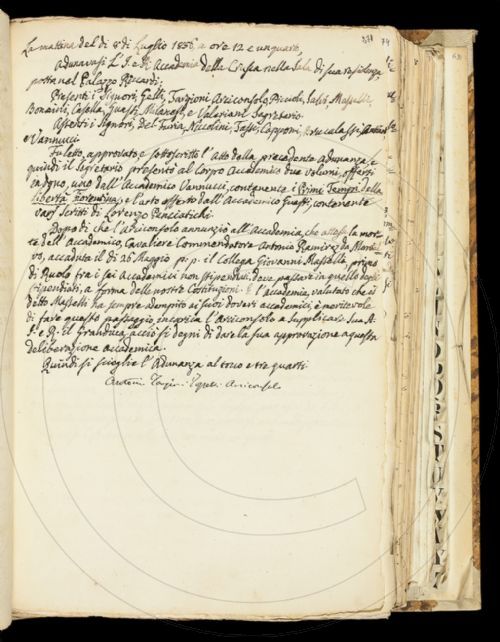 371 74
La mattina del dì 8 di Luglio 1856, a ore 12 e un quarto,
Adunavasi l'I. e R. Accademia della Crusca nella Sala di sua residenza
posta nel Palazzo Riccardi;
Presenti i Signori, Gelli, Targioni Arciconsolo, Piccioli, Salvi, Masselli,
Bonaini, Casella, Guasti, Milanesi, e Valeriani Segretario.
Assenti i Signori, Del Furia, Niccolini, Tassi, Capponi,
e Vannucci.
Fu letto, approvato, e sottoscritto l'Atto della precedente Adunanza, e
quindi il Segretario presentò al Corpo Accademico due volumi, offerti
in dono, uno dall'Accademico Vannucci, contenente i Primi Tempi della
libertà Fiorentina; e l'altro offerto dall'Accademico Guasti, contenente
varj Scritti di Lorenzo Panciatichi.
Dopo di che l'Arciconsolo annunziò all'Accademia, che attesa la mor-
te dell'Accademico, Cavaliere Commendatore Antonio Ramirez da Monta
vo, accaduta il dì 26 di Maggio p. p. il Collega Giovanni Masselli, primo
di Ruolo tra i sei Accademici non stipendiati, deve passare in quello degli
stipendiati, a forma delle nostre Costituzioni. E l'accademia, valutato che il
detto Masselli ha sempre adempito ai suoi doveri accademici, è meritevole
di fare questo passaggio, incaricò l'Arciconsolo a supplicare Sua A.
I. e R. il Granduca, acciò si degni di dare la sua approvazione a questa
deliberazione accademica.
Quindi si sciolse l'Adunanza al tocco e tre quarti.
Targioni Tozzetti Arciconsolo